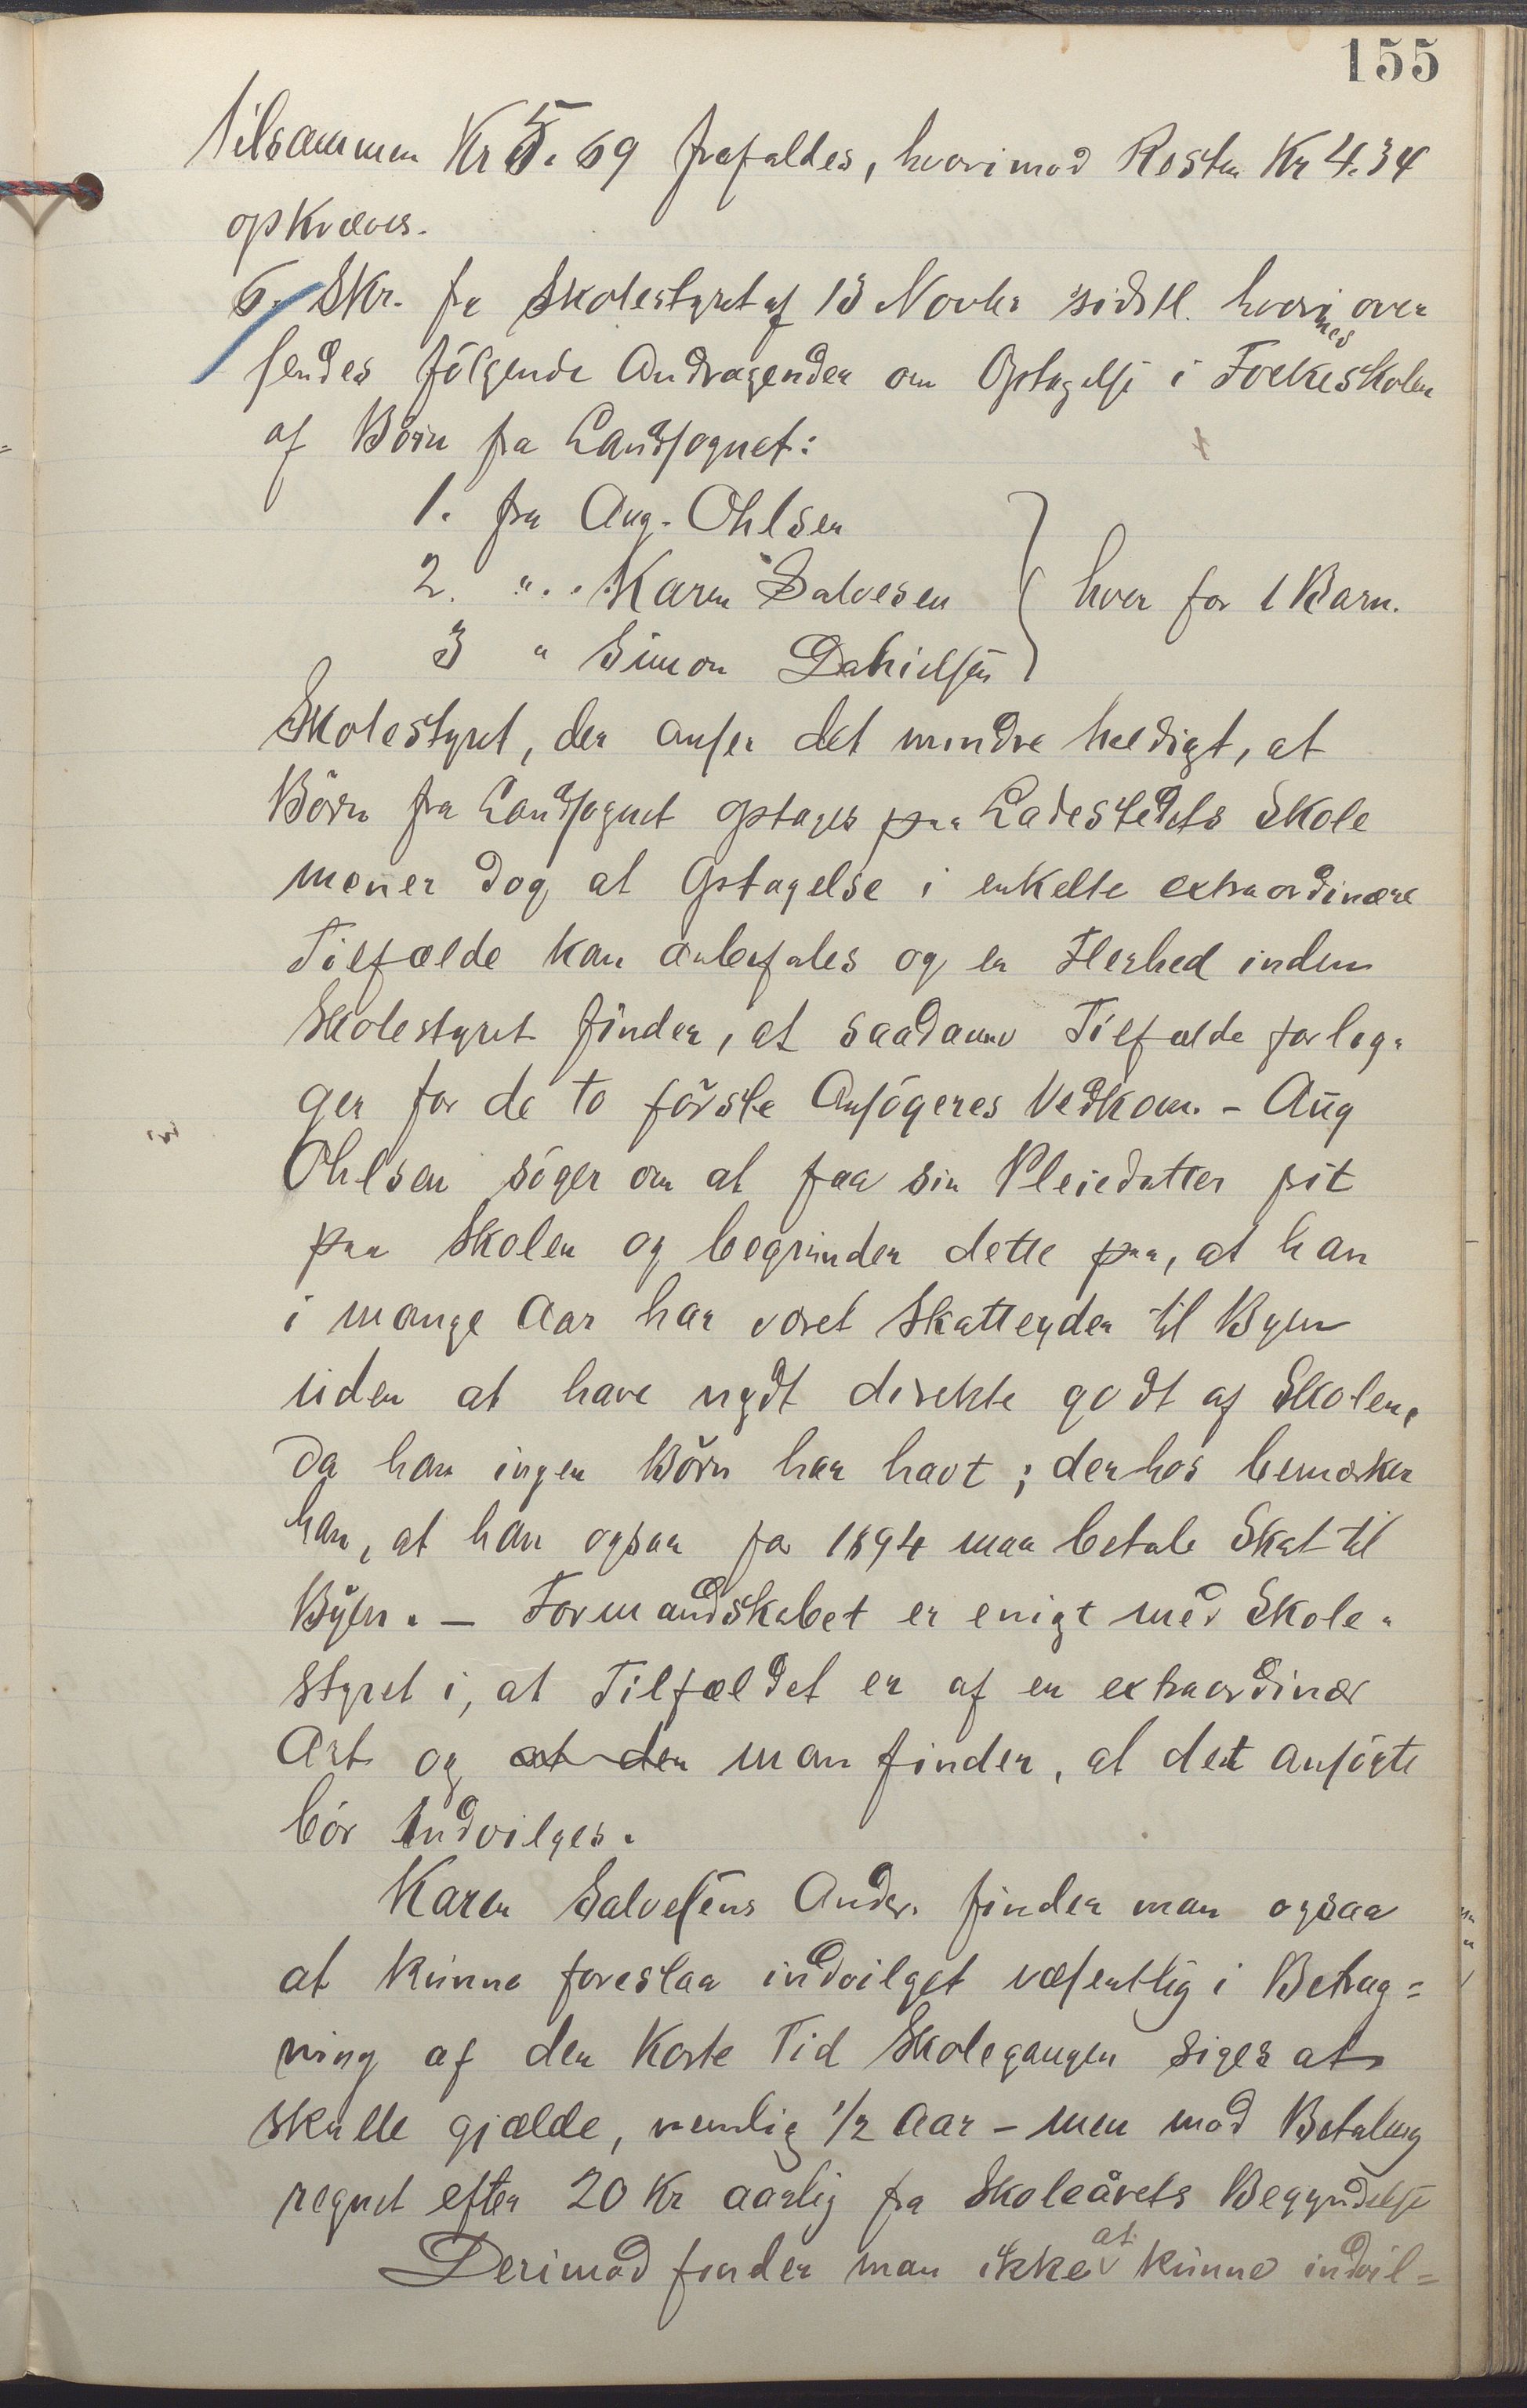 155
tilsammen Kr 5.69 frafaldes, hvorimod Resten Kr 4.34
opkræves.
6. Skr. fra Skolestyret af 13 Novbr sidstl. hvormed over
sendes følgende Andragender om Optagelse i Folkeskolen
af Børn fra Landsognet:
1. fra Aug. Ohlsen
2. " . Karen Salvesen } hver for 1 Barn.
3 " Simon Danielsen
Skolestyret, der anser det mindre heldigt, at
Børn fra Landsognet optages paa Ladestedets Skole
mener dog at Optagelse i enkelte extraordinære
Tilfælde kan anbefales og en Flerhed inden
Skolestyret finder, at saadanne Tilfælde forlig-
ger for de to første Ansøgeres Vedkom. - Aug
Ohlsen søger om at faa sin Pleiedatter sit
paa Skolen og begrunder dette paa, at han
i mange Aar har været Skatteyder til Byen
uden at have nydt direkte godt af Skolen,
da han ingen Børn har havt; derhos bemærker
han, at han ogsaa for 1894 maa betale Skat til
Byen. - Formandskabet er enigt med Skole-
styret i, at Tilfældet er af en extraordinær
Art og at der man finder, at det ansøgte
bør indvilges.
Karen Salvesens Andr. finder man ogsaa
at kunne foreslaa indvilget væsentlig i Betrag=
ning af den korte Tid Skolegangen siges at
skulle gjælde, nemlig 1/2 Aar - men mod Betaling
regnet efter 20 Kr aarlig fra Skoleårets Begyndelse
Derimod finder man ikke at kunne indvil=